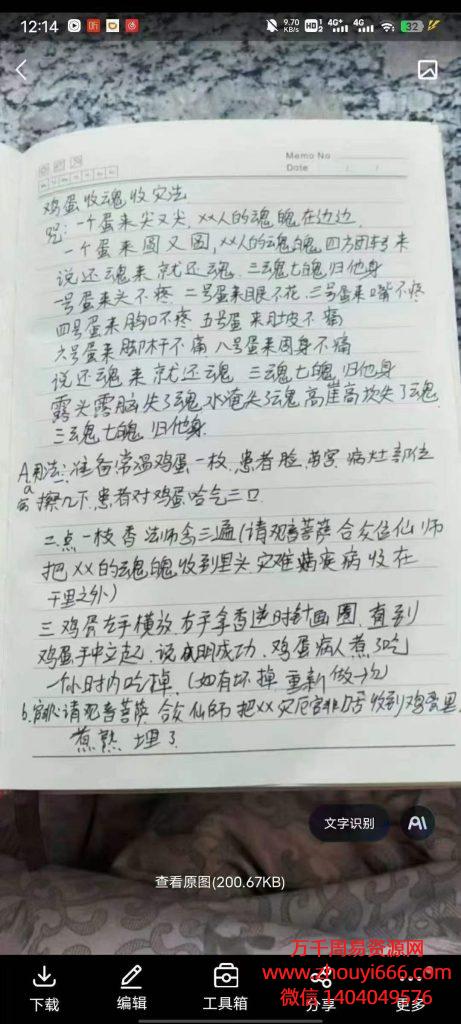 12:14
9.70 KB/s HD 1 2 4G+ 4G 32
Memo No
Date / /
鸡蛋收魂收灾法
咒:一个蛋来尖又尖,XX人的魂魄在边边
一个蛋来圆又圆,XX人的魂魄四方回转来
说还魂来就还魂 三魂七魄归他身
一号蛋来头不疼 二号蛋来眼不花 三号蛋来嘴不疼
四号蛋来胸口不疼 五号蛋来肚皮不痛
六号蛋来脚杆不痛 八号蛋来周身不痛
说还魂来就还魂 三魂七魄归他身
露头露脑失了魂 水淹失了魂 高崖高坎失了魂
三魂七魄归他身
A用法:准备常温鸡蛋一枚,患者脸 病灶部位
a
擦几下,患者对鸡蛋哈气三口
二点一枝香 法师念三遍(请观音菩萨合众位仙师
把XX的魂魄收到里头 灾难疾病收在
千里之外)
三 鸡蛋左手横放,右手拿香逆时针画圈,直到
鸡蛋手中立起,说明成功,鸡蛋病人煮了吃
一个小时内吃掉.(如有坏掉 重新做一次)
b.请观音菩萨合众仙师把XX灾厄官非口舌收到鸡蛋里
煮熟 埋了
文字识别
AI
查看原图(200.67KB)
万千周易资源网
www.zhouyi666.com
微信 1404049576
下载
编辑
工具箱
分享
更多